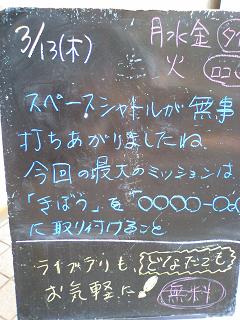 3/13(木)
月水金
火
スペースシャトルが無事
打ちあがりましたね
今回の最大のミッションは
「きぼう」を「○○○○-○○
に取り付けること
ライブラリも、どなたでも
お気軽に！
無料